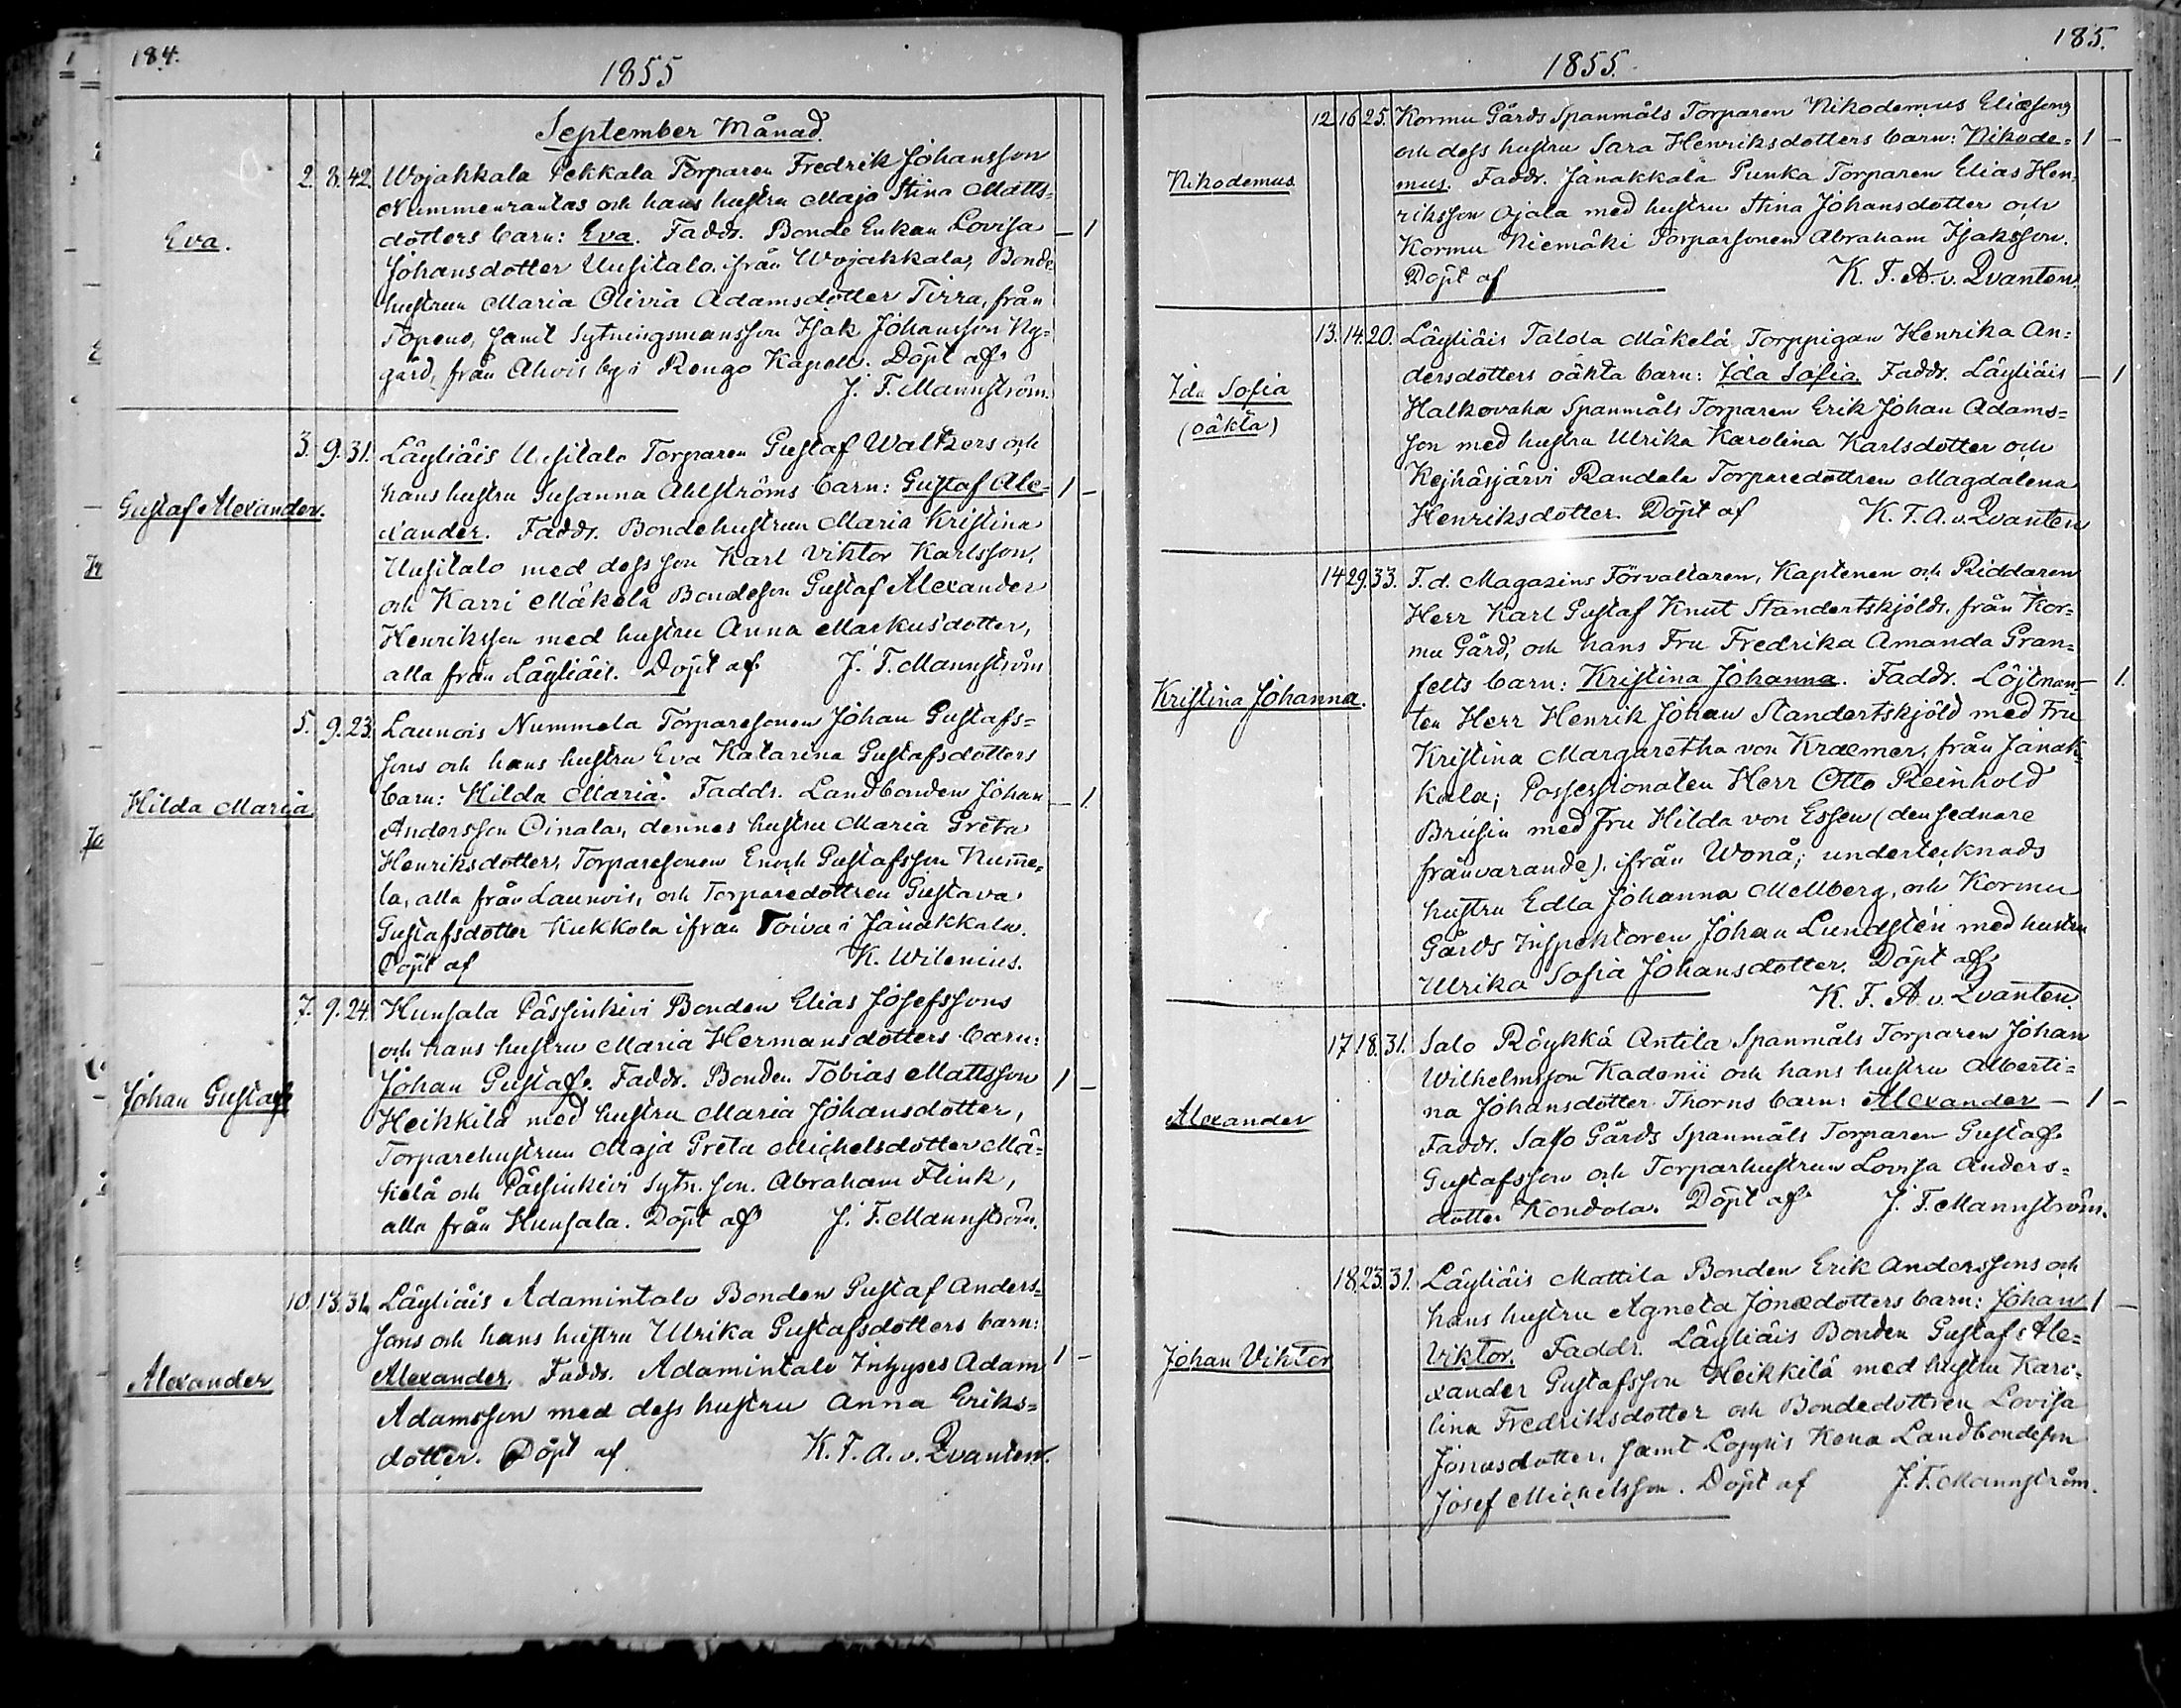 184.
1855
September Månad.
Eva.
2. 8. 42. Wojakkala Pekkala Torparen Fredrik Johansson
Nummenrantas och hans hustru Maja Stina Matts-
dotters barn: Eva. Faddr. Bonde Enkan Lovisa — 1
Johansdotter Uusitalo ifrån Wojakkala, Bonde-
hustrun Maria Olivia Adamsdotter Tirra, från
Topeno, samt Sytningsmansson Isak Johansson Ny-
gård, från Ahvis by i Rengo Kapell. Döpt af
J. F. Mannström.
Gustaf Alexander.
3. 9. 31. Läyliäis Uusitalo Torparen Gustaf Walters och
hans hustru Susanna Ahlströms barn: Gustaf Ale- 1 —
xander. Faddr. Bondehustrun Maria Kristina
Uusitalo med dess son Karl Viktor Karlsson,
och Karri Mäkelä Bondeson Gustaf Alexander
Henriksson med hustru Anna Markusdotter,
alla från Läyliäis. Döpt af J. F. Mannström
Hilda Maria.
5. 9. 23. Launois Nummela Torparesonen Johan Gustafs-
sons och hans hustru Eva Katarina Gustafsdotters
barn: Hilda Maria. Faddr. Landbonden Johan — 1.
Andersson Oinala, dennes hustru Maria Greta
Henriksdotter, Torparesonen Enoch Gustafsson Num̅e-
la, alla från Launois, och Torparedottren Gustava
Gustafsdotter Kukkola ifrån Toiva i Janakkala.
Döpt af K. Wilenius.
Johan Gustaf
7. 9. 24. Hunsala Pässinkivi Bonden Elias Josefssons
och hans hustru Maria Hermansdotters barn:
Johan Gustaf. Faddr. Bonden Tobias Mattsson 1 —
Heikkilä med hustru Maria Johansdotter,
Torparehustrun Maja Greta Michelsdotter Mä-
kelä och Pässinkivi Sytn. son. Abraham Flink,
alla från Hunsala. Döpt af J. F. Mannström.
Alexander
10. 13. 31. Läyliäis Adamintalo Bonden Gustaf Anders-
sons och hans hustru Ulrika Gustafsdotters barn:
Alexander. Faddr. Adamintalo Inhyses Adam 1 —
Adamsson med dess hustru Anna Eriks-
dotter. Döpt af K. F. A. v. Qvanten.
185.
1855.
Nikodemus
12. 16. 25. Kormu Gårds Spanmåls Torparen Nikodemus Eliæsons
och dess hustru Sara Henriksdotters barn: Nikode- 1 —
mus. Faddr. Janakkala Punka Torparen Elias Hen-
riksson Ojala med hustru Stina Johansdotter och
Kormu Niemäki Torparsonen Abraham Isaksson.
Döpt af K. F. A. v. Qvanten.
Ida Sofia
(oäkta)
13. 14. 20. Läyliäis Talola Mäkelä Torppigan Henrika An-
dersdotters oäkta barn: Ida Sofia. Faddr. Läyliäis — 1
Halkovaha Spanmåls Torparen Erik Johan Adams-
son med hustru Ulrika Karolina Karlsdotter och
Kejhäsjärvi Randala Torparedottren Magdalena
Henriksdotter. Döpt af K. F. A. v. Qvanten
Kristina Johanna.
14. 29. 33. F. d. Magasins Förvaltaren, Kaptenen och Riddaren
Herr Karl Gustaf Knut Standertskjölds, från Kor-
mu Gård, och hans Fru Fredrika Amanda Gran-
felts barn: Kristina Johanna. Faddr. Löjtnan- — 1.
ten Herr Henrik Johan Standertskjöld med Fru
Kristina Margaretha von Kraemer, från Janak-
kala; Possessionaten Herr Otto Reinhold
Brusin med Fru Hilda von Essen (den sednare
frånvarande), ifrån Wonå; undertecknads
hustru Edla Johanna Mellberg, och Kormu
Gårds Inspektoren Johan Lundstén med hustru
Ulrika Sofia Johansdotter. Döpt af
K. F. A. v. Qvanten.
Alexander
17. 18. 31. Salo Röykkä Antila Spanmåls Torparen Johan
Wilhelmsson Kadenii och hans hustru Alberti-
na Johansdotter Thorns barn: Alexander — 1 —
Faddr. Salo Gårds Spanmåls Torparen Gustaf
Gustafsson och Torparhustrun Lovisa Anders-
dotter Kondola. Döpt af J. F. Mannström.
Johan Viktor
18. 23. 31. Läyliäis Mattila Bonden Erik Anderssons och
hans hustru Agneta Jonædotters barn: Johan 1 —
Viktor. Faddr. Läyliäis Bonden Gustaf Ale-
xander Gustafsson Heikkilä med hustru Karo-
lina Fredriksdotter och Bondedottren Lovisa
Jonasdotter, samt Loppis Kena Landbondeson
Josef Michelsson. Döpt af J. F. Mannström.